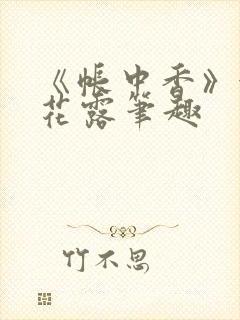 《帐中香》
花露笔趣
竹不思